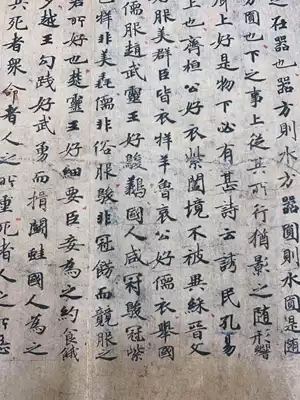 之在器也器方則水方器圓則水圓是隨
方圓也下之事上從其所行猶影之隨形響
上好是物下必有甚詩云誘民孔易
上也齊桓公好衣紫闔境不被異綵晉文
好服美群臣皆衣牂羊魯哀公好儒衣舉國
儒服趙武靈王好鵔鸃國人咸冠鵔冠紫
色牂非美毳儒非俗服鵔非冠飾而競服之
君所好也楚靈王好細要臣妾為之約食餓
多越王勾踐好武勇而揖鬭蛙國人為之
兵死者眾命者人之所重死者人之所惡